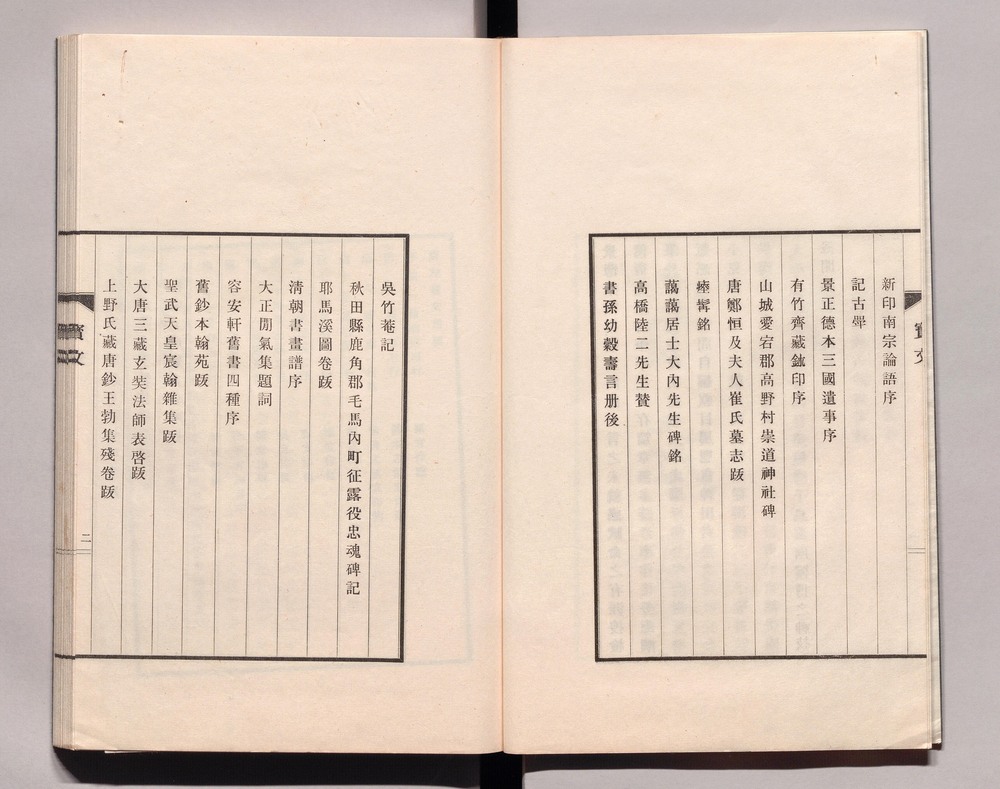 新印南宗論語序
記古璽
景正德本三國遺事序
有竹齊藏鉨印序
山城愛宕郡高野村崇道神社碑
唐鄭恒及夫人崔氏墓志跋
瘞髯銘
藹藹居士大內先生碑銘
高橋陸二先生贊
書孫幼穀壽言册後
吳竹菴記
秋田縣鹿角郡毛馬內町征露役忠魂碑記
耶馬溪圖卷跋
淸朝書畫譜序
大正閒氣集題詞
容安軒舊書四種序
舊鈔本翰苑跋
聖武天皇宸翰雜集跋
大唐三藏玄奘法師表啓跋
上野氏藏唐鈔王勃集殘卷跋
寶文
二